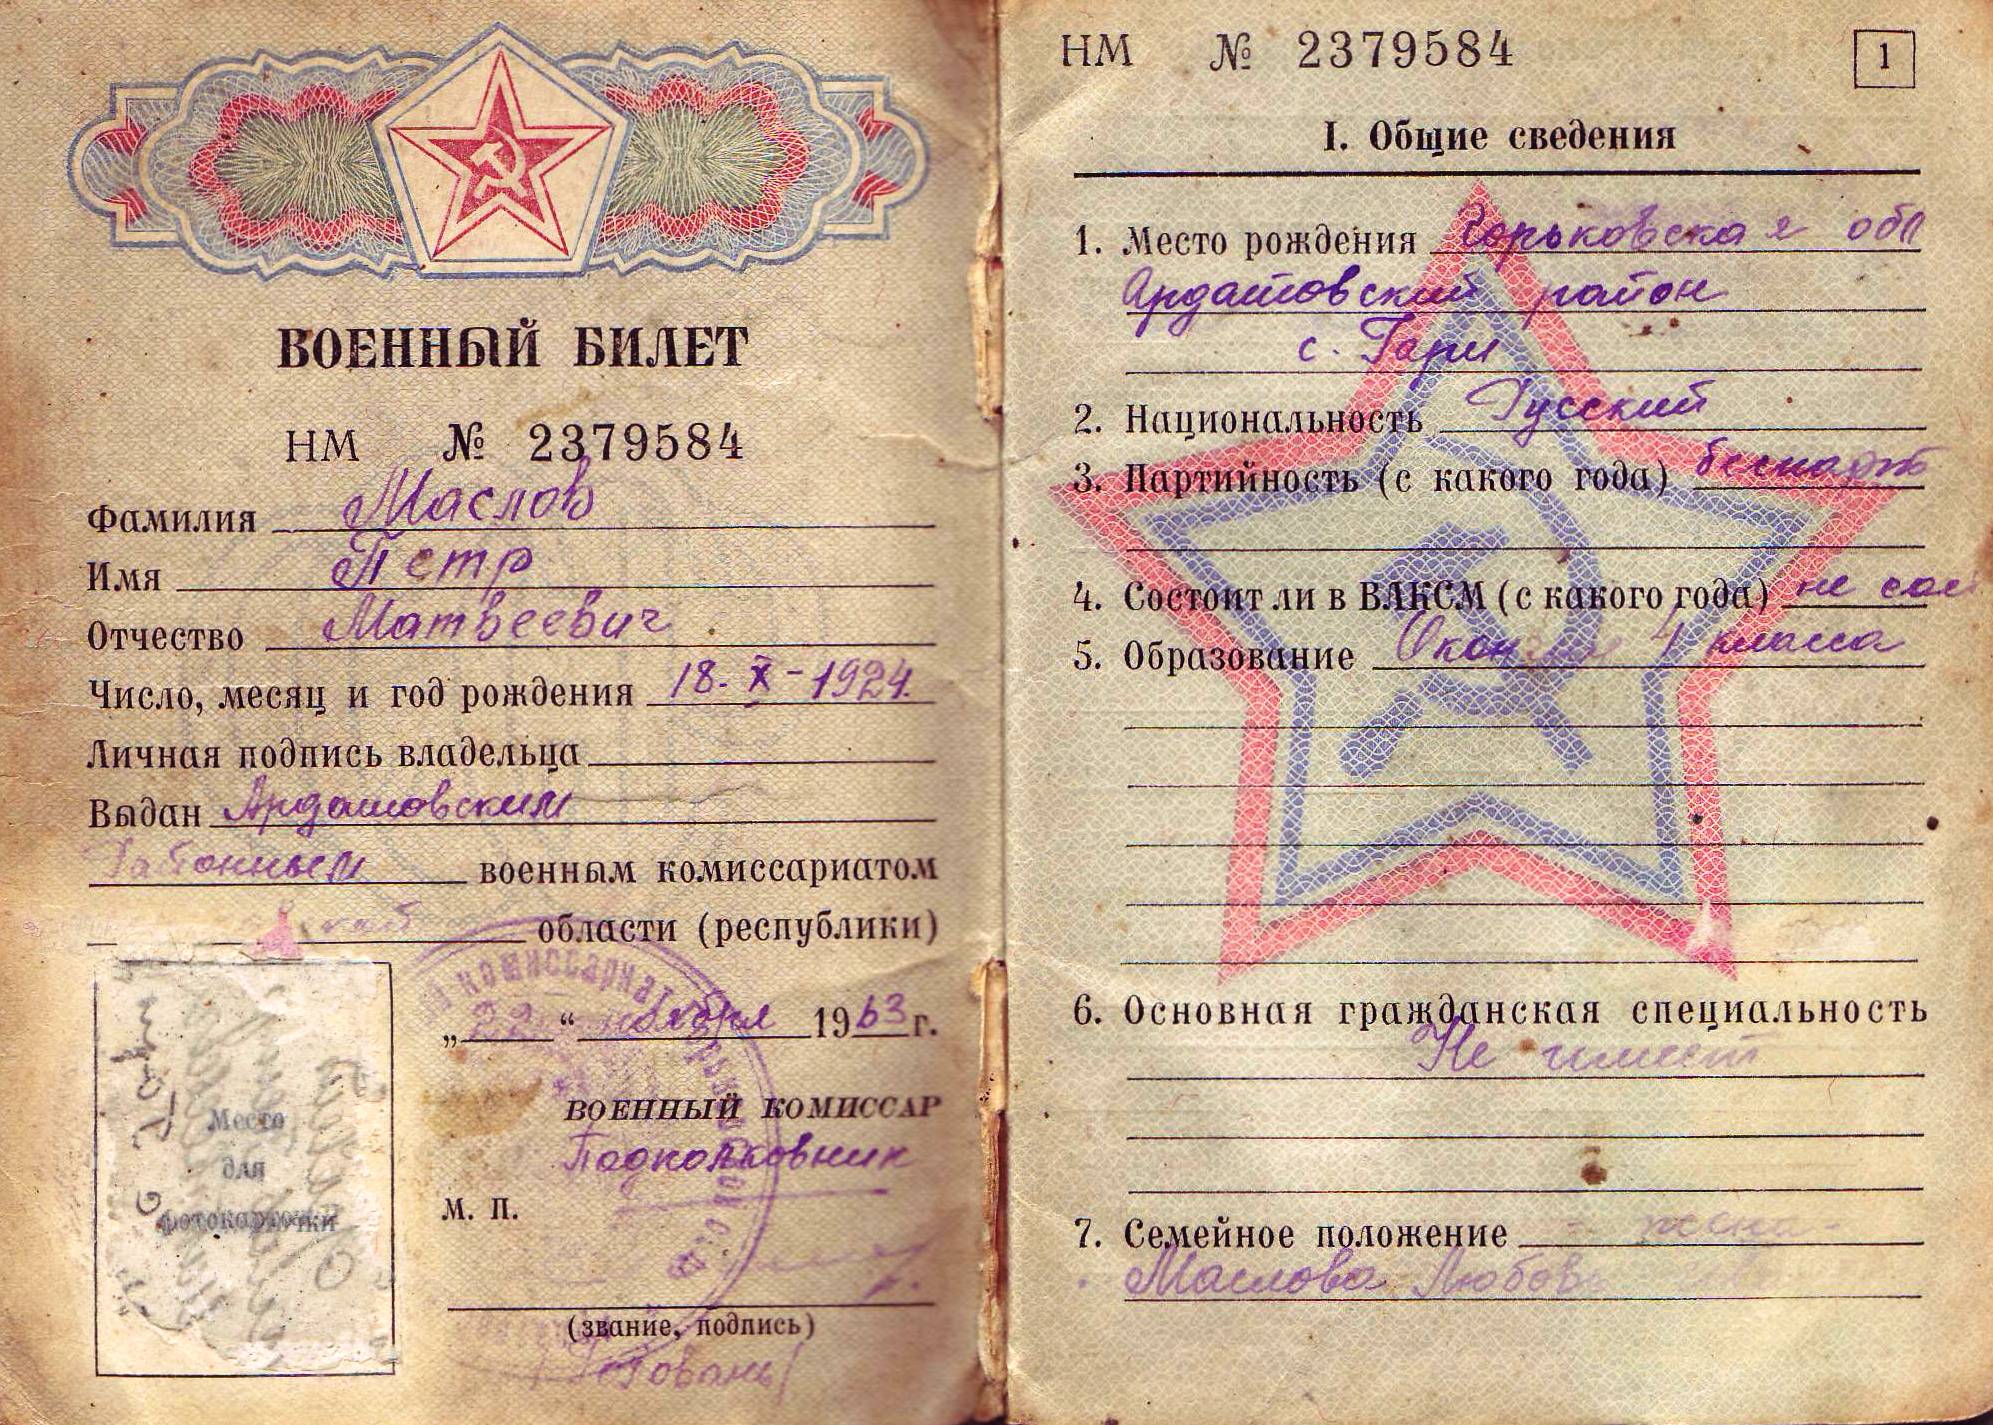 ВОЕННЫЙ БИЛЕТ
НМ № 2379584
Фамилия Маслов
Имя Петр
Отчество Матвеевич
Число, месяц и год рождения 18. X - 1924.
Личная подпись владельца
Выдан Ардатовским
Районным военным комиссариатом
области (республики)
„22“ ноября 1963 г.
ВОЕННЫЙ КОМИССАР
Подполковник
М. П.
(звание, подпись)
Место
для
фотокарточки
НМ № 2379584
1
I. Общие сведения
1. Место рождения Горьковская обл
Ардатовский район
с. Гари
2. Национальность Русский
3. Партийность (с какого года) беспарт
4. Состоит ли в ВЛКСМ (с какого года) не сос
5. Образование Окончил 4 класса
6. Основная гражданская специальность
Не имеет
7. Семейное положение - жена -
Маслова Любовь